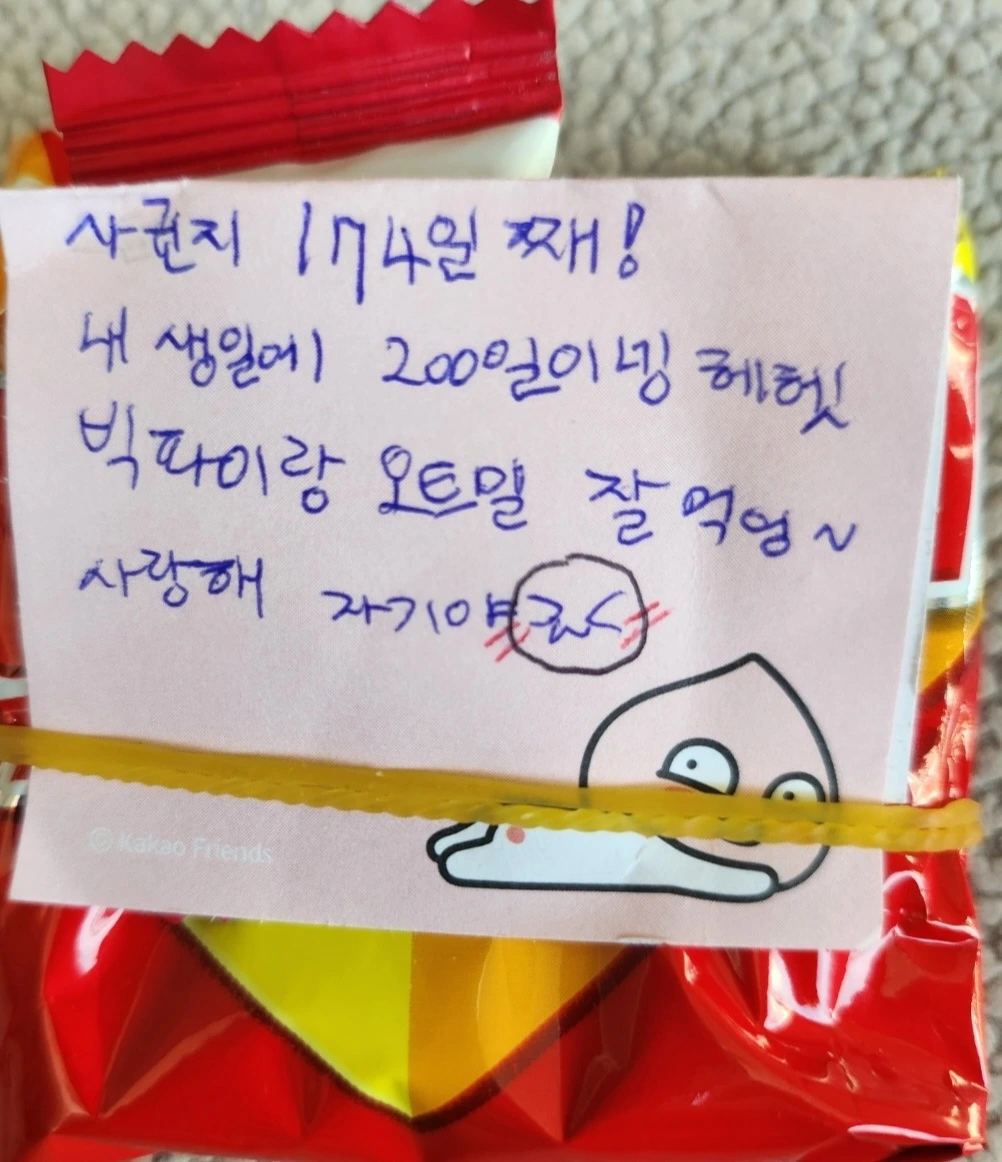 사귄지 174일 째!
내 생일에 200일이넹 헤헷
빅파이랑 오트밀 잘 먹엉~
사랑해 자기야
© Kakao Friends